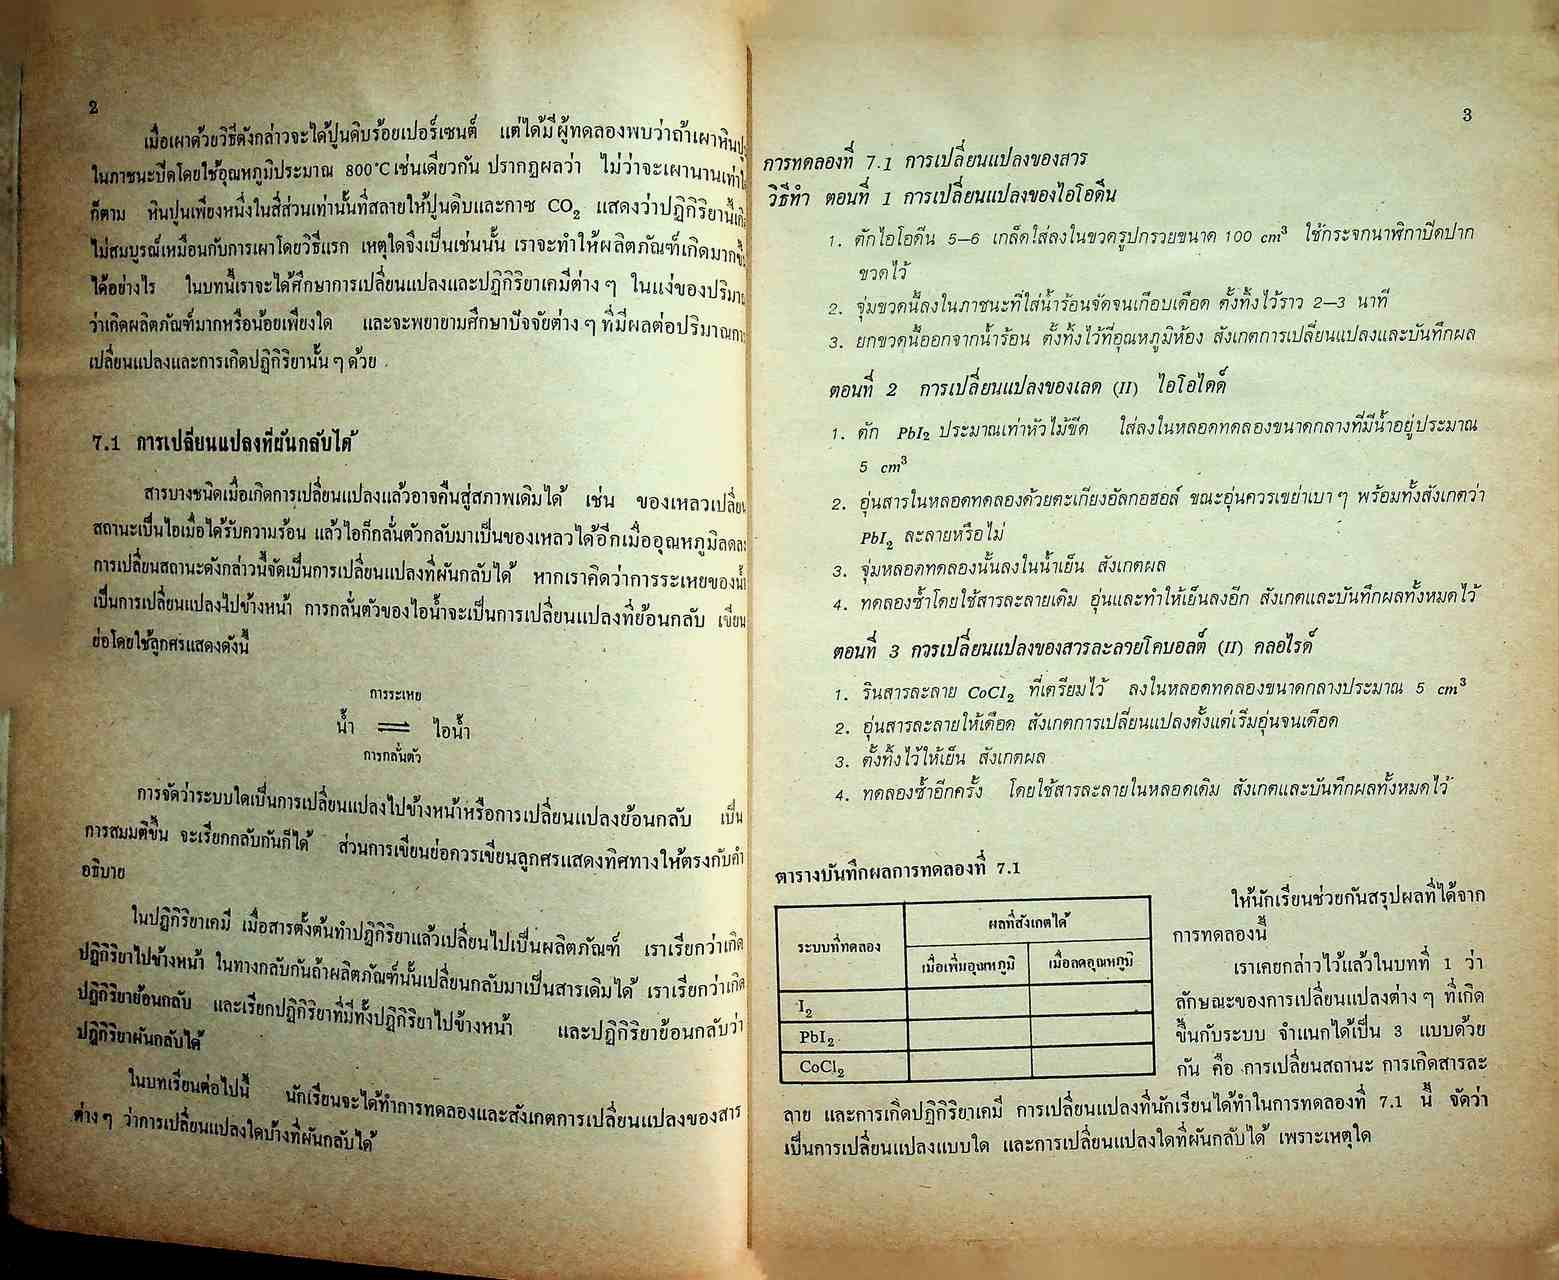 2
เมื่อเผาด้วยวิธีดังกล่าวจะได้ปูนดิบร้อยเปอร์เซนต์ แต่ได้มีผู้ทดลองพบว่าถ้าเผาหินปู
ในภาชนะปิดโดยใช้อุณหภูมิประมาณ 800°C เช่นเดียวกัน ปรากฏผลว่า ไม่ว่าจะเผานานเท่าใ
ก็ตาม หินปูนเพียงหนึ่งในสี่ส่วนเท่านั้นที่สลายให้ปูนดิบและกาซ CO₂ แสดงว่าปฏิกิริยานี้เกิ
ไม่สมบูรณ์เหมือนกับการเผาโดยวิธีแรก เหตุใดจึงเป็นเช่นนั้น เราจะทำให้ผลิตภัณฑ์เกิดมากขึ้
ได้อย่างไร ในบทนี้เราจะได้ศึกษาการเปลี่ยนแปลงและปฏิกิริยาเคมีต่าง ๆ ในแง่ของปริมา
ว่าเกิดผลิตภัณฑ์มากหรือน้อยเพียงใด และจะพยายามศึกษาปัจจัยต่าง ๆ ที่มีผลต่อปริมาณกา
เปลี่ยนแปลงและการเกิดปฏิกิริยานั้น ๆ ด้วย .
7.1 การเปลี่ยนแปลงที่ผันกลับได้
สารบางชนิดเมื่อเกิดการเปลี่ยนแปลงแล้วอาจคืนสู่สภาพเดิมได้ เช่น ของเหลวเปลี่ยน
สถานะเป็นไอเมื่อได้รับความร้อน แล้วไอก็กลั่นตัวกลับมาเป็นของเหลวได้อีกเมื่ออุณหภูมิลดล
การเปลี่ยนสถานะดังกล่าวนี้จัดเป็นการเปลี่ยนแปลงที่ผันกลับได้ หากเราคิดว่าการระเหยของน้ำ
เป็นการเปลี่ยนแปลงไปข้างหน้า การกลั่นตัวของไอน้ำจะเป็นการเปลี่ยนแปลงที่ย้อนกลับ เขียน
ย่อโดยใช้ลูกศรแสดงดังนี้
การระเหย
น้ำ ⇌ ไอน้ำ
การกลั่นตัว
การจัดว่าระบบใดเป็นการเปลี่ยนแปลงไปข้างหน้าหรือการเปลี่ยนแปลงย้อนกลับ เป็น
การสมมติขึ้น จะเรียกกลับกันก็ได้ ส่วนการเขียนย่อควรเขียนลูกศรแสดงทิศทางให้ตรงกับคำ
อธิบาย
ในปฏิกิริยาเคมี เมื่อสารตั้งต้นทำปฏิกิริยาแล้วเปลี่ยนไปเป็นผลิตภัณฑ์ เราเรียกว่าเกิด
ปฏิกิริยาไปข้างหน้า ในทางกลับกันถ้าผลิตภัณฑ์นั้นเปลี่ยนกลับมาเป็นสารเดิมได้ เราเรียกว่าเกิด
ปฏิกิริยาย้อนกลับ และเรียกปฏิกิริยาที่มีทั้งปฏิกิริยาไปข้างหน้า และปฏิกิริยาย้อนกลับว่า
ปฏิกิริยาผันกลับได้
ในบทเรียนต่อไปนี้ นักเรียนจะได้ทำการทดลองและสังเกตการเปลี่ยนแปลงของสาร
ต่าง ๆ ว่าการเปลี่ยนแปลงใดบ้างที่ผันกลับได้
3
การทดลองที่ 7.1 การเปลี่ยนแปลงของสาร
วิธีทำ ตอนที่ 1 การเปลี่ยนแปลงของไอโอดีน
1. ตักไอโอดีน 5–6 เกล็ดใส่ลงในขวดรูปกรวยขนาด 100 cm³ ใช้กระจกนาฬิกาปิดปาก
ขวดไว้
2. จุ่มขวดนี้ลงในภาชนะที่ใส่น้ำร้อนจัดจนเกือบเดือด ตั้งทิ้งไว้ราว 2–3 นาที
3. ยกขวดนี้ออกจากน้ำร้อน ตั้งทิ้งไว้ที่อุณหภูมิห้อง สังเกตการเปลี่ยนแปลงและบันทึกผล
ตอนที่ 2 การเปลี่ยนแปลงของเลด (II) ไอโอไดด์
1. ตัก PbI₂ ประมาณเท่าหัวไม้ขีด ใส่ลงในหลอดทดลองขนาดกลางที่มีน้ำอยู่ประมาณ
5 cm³
2. อุ่นสารในหลอดทดลองด้วยตะเกียงอัลกอฮอล์ ขณะอุ่นควรเขย่าเบา ๆ พร้อมทั้งสังเกตว่า
PbI₂ ละลายหรือไม่
3. จุ่มหลอดทดลองนั้นลงในน้ำเย็น สังเกตผล
4. ทดลองซ้ำโดยใช้สารละลายเดิม อุ่นและทำให้เย็นลงอีก สังเกตและบันทึกผลทั้งหมดไว้
ตอนที่ 3 การเปลี่ยนแปลงของสารละลายโคบอลต์ (II) คลอไรด์
1. รินสารละลาย CoCl₂ ที่เตรียมไว้ ลงในหลอดทดลองขนาดกลางประมาณ 5 cm³
2. อุ่นสารละลายให้เดือด สังเกตการเปลี่ยนแปลงตั้งแต่เริ่มอุ่นจนเดือด
3. ตั้งทิ้งไว้ให้เย็น สังเกตผล
4. ทดลองซ้ำอีกครั้ง โดยใช้สารละลายในหลอดเดิม สังเกตและบันทึกผลทั้งหมดไว้
ตารางบันทึกผลการทดลองที่ 7.1
ระบบที่ทดลอง ผลที่สังเกตได้
เมื่อเพิ่มอุณหภูมิ เมื่อลดอุณหภูมิ
I₂
PbI₂
CoCl₂
ให้นักเรียนช่วยกันสรุปผลที่ได้จาก
การทดลองนี้
เราเคยกล่าวไว้แล้วในบทที่ 1 ว่า
ลักษณะของการเปลี่ยนแปลงต่าง ๆ ที่เกิด
ขึ้นกับระบบ จำแนกได้เป็น 3 แบบด้วย
กัน คือ การเปลี่ยนสถานะ การเกิดสารละ
ลาย และการเกิดปฏิกิริยาเคมี การเปลี่ยนแปลงที่นักเรียนได้ทำในการทดลองที่ 7.1 นี้ จัดว่า
เป็นการเปลี่ยนแปลงแบบใด และการเปลี่ยนแปลงใดที่ผันกลับได้ เพราะเหตุใด